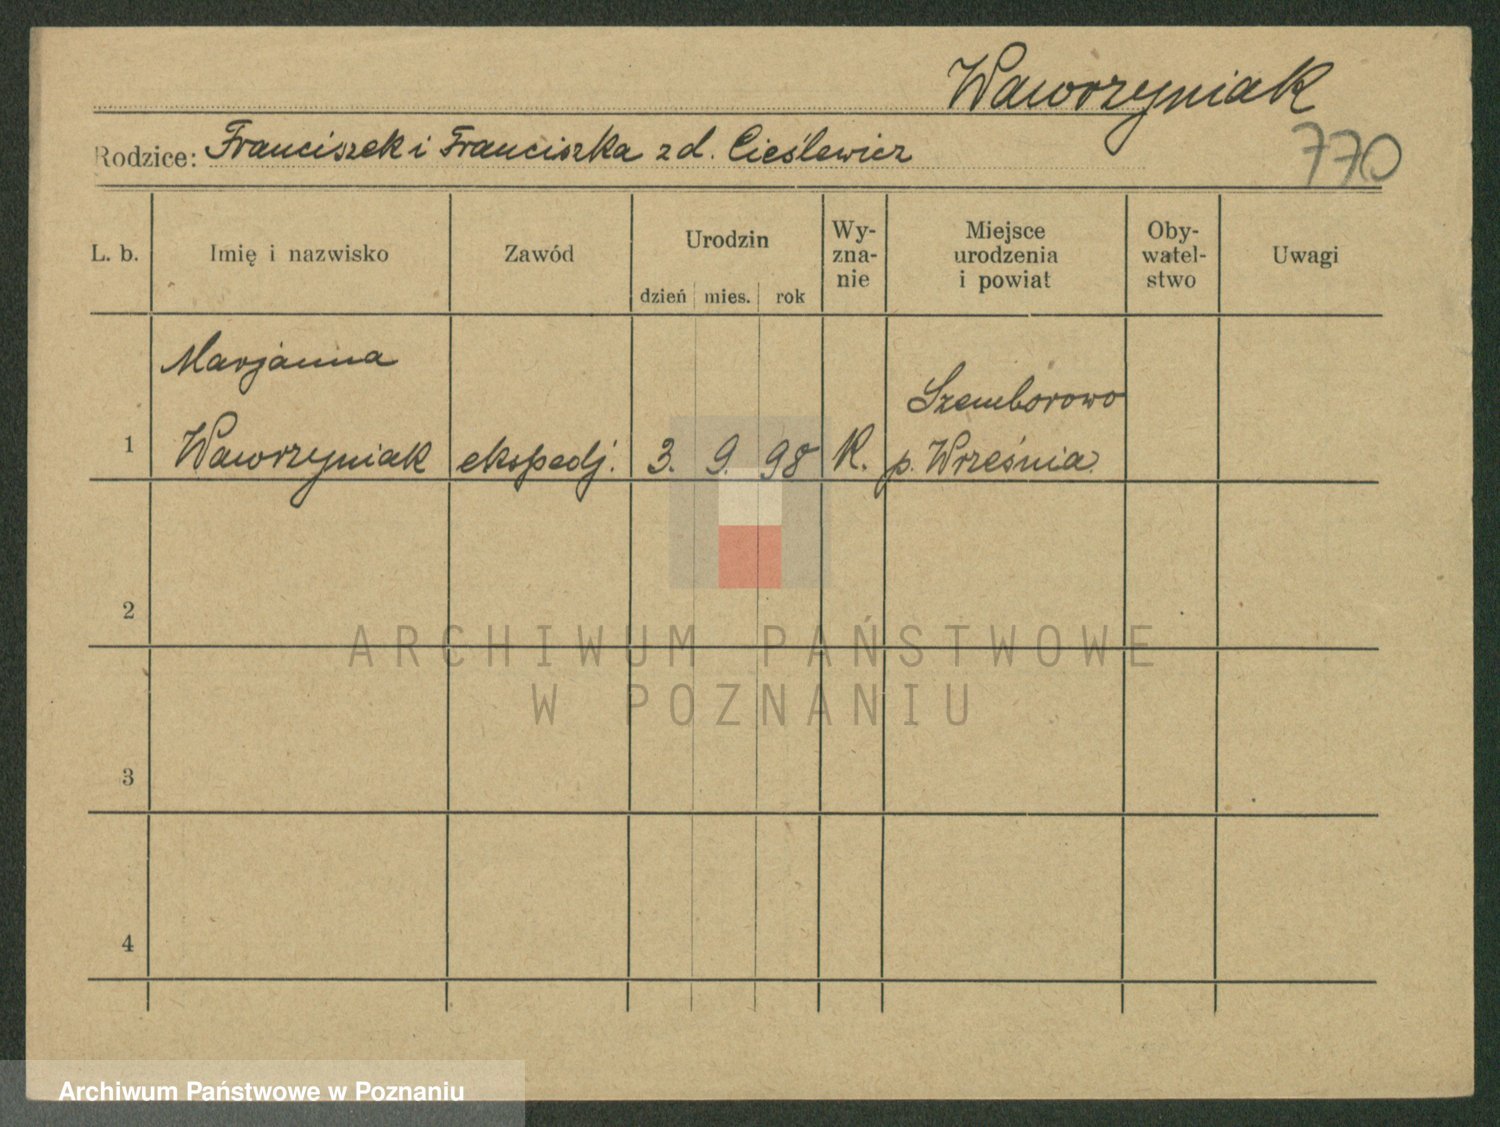 Wawrzyniak
Rodzice: Franciszek i Franciszka z d. Cieślewicz
770
L. b.
Imię i nazwisko
Zawód
Urodzin
dzień mies. rok
Wy-
zna-
nie
Miejsce
urodzenia
i powiat
Oby-
watel-
stwo
Uwagi
Marjanna
Szemborowo
1 Wawrzyniak ekspedj. 3. 9. 98 K. p. Września
2
ARCHIWUM PAŃSTWOWE
W POZNANIU
3
4
Archiwum Państwowe w Poznaniu